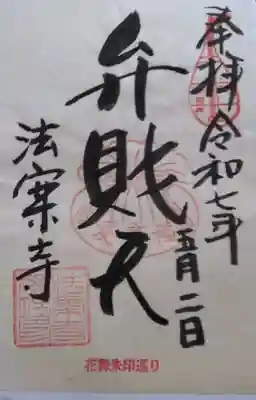 奉拝
令和七年
五月二日
弁財天
法案寺
花舞朱印巡り